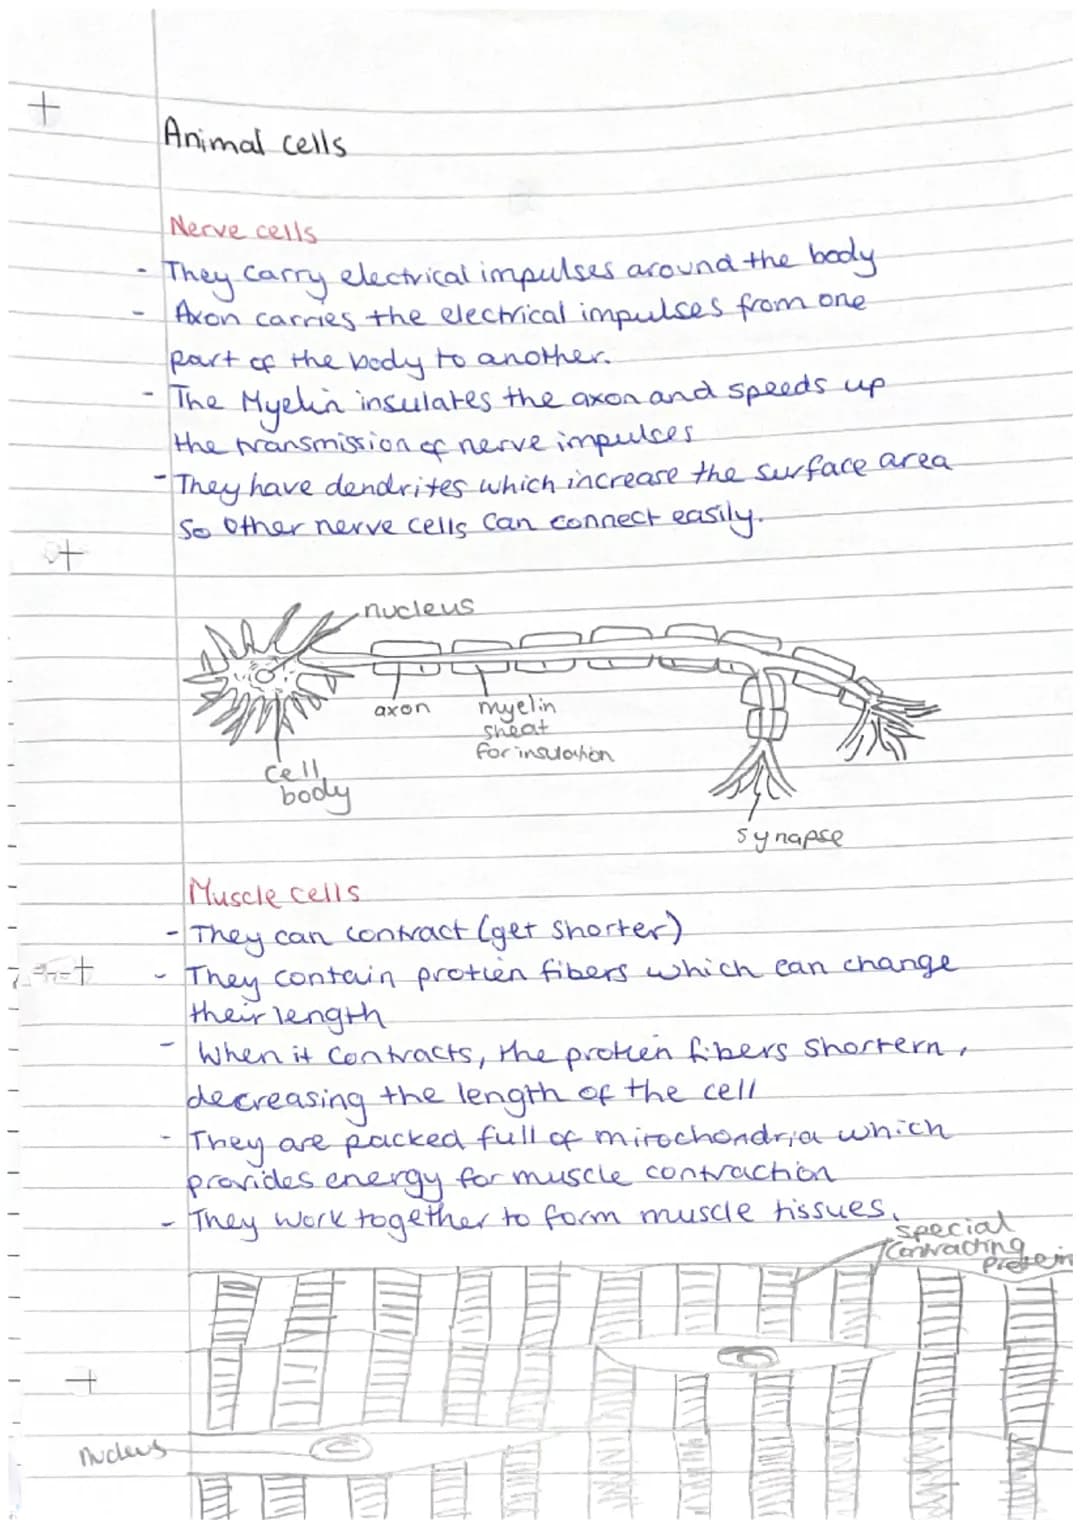 Animal cells
Nerve cells
- They carry electrical impulses around the body
- Axon carries the electrical impulses from one
part of the body to another.
- The Myelin insulates the axon and speeds up
the transmission of nerve impulses
- They have dendrites which increase the surface area
So other nerve cells can connect easily.
nucleus
axon
myelin
sheat
for insulation
cell
body
synapse
Muscle cells
- They can contract (get shorter)
- They contain protien fibers which can change
their length
- When it contracts, the protien fibers shortern,
decreasing the length of the cell
- They are packed full of mitochondria which
provides energy for muscle contraction
- They work together to form muscle tissues.
special
contracting
protein
nucleus